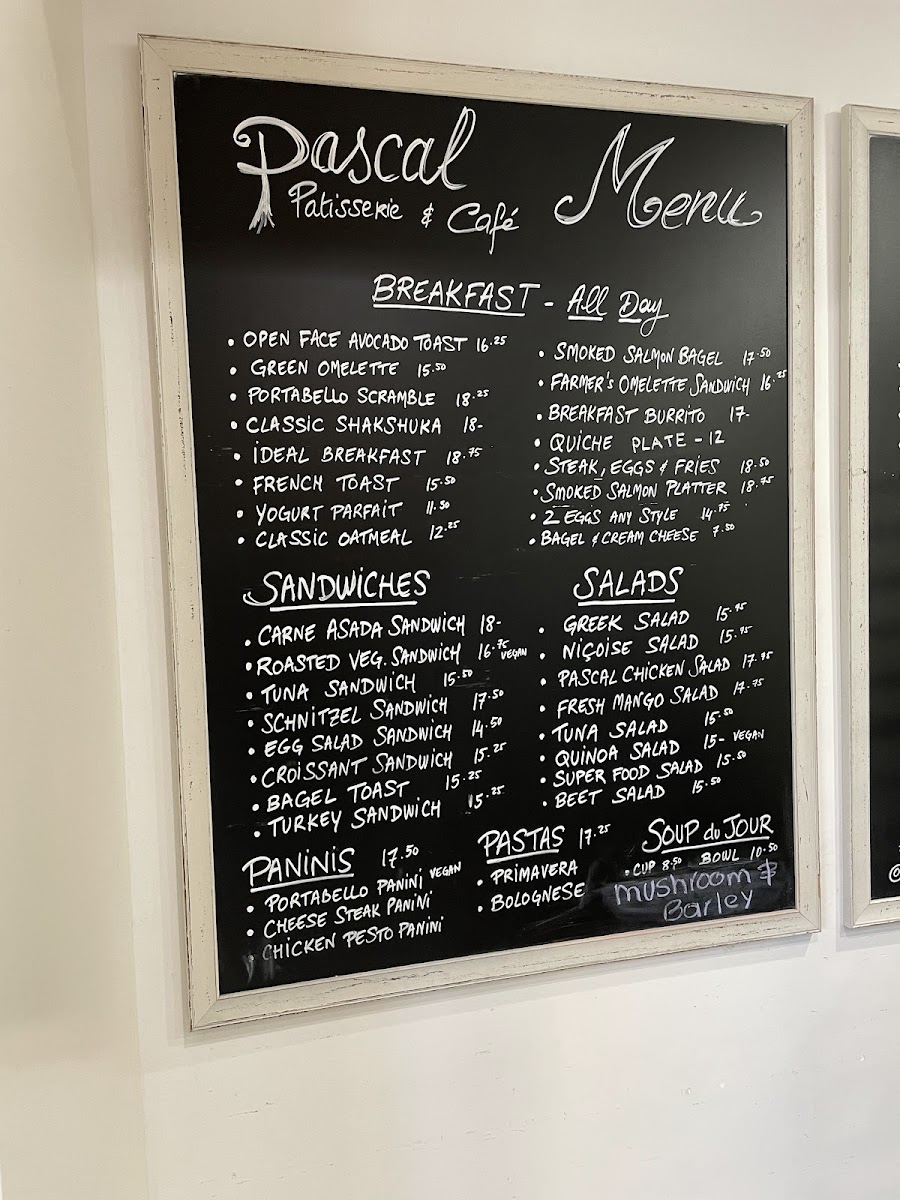 Pascal
Patisserie & Café
Menu
BREAKFAST - All Day
• OPEN FACE AVOCADO TOAST 16.25
• GREEN OMELETTE 15.50
• PORTABELLO SCRAMBLE 18.25
• CLASSIC SHAKSHUKA 18-
• IDEAL BREAKFAST 18.75
• FRENCH TOAST 15.50
• YOGURT PARFAIT 11.50
• CLASSIC OATMEAL 12.25
• SMOKED SALMON BAGEL 17.50
• FARMER'S OMELETTE SANDWICH 16.25
• BREAKFAST BURRITO 17-
• QUICHE PLATE - 12
• STEAK, EGGS & FRIES 18.50
• SMOKED SALMON PLATTER 18.75
• 2 EGGS ANY STYLE 14.75
• BAGEL & CREAM CHEESE 7.50
SANDWICHES
• CARNE ASADA SANDWICH 18-
• ROASTED VEG. SANDWICH 16.75 VEGAN
• TUNA SANDWICH 15.50
• SCHNITZEL SANDWICH 17.50
• EGG SALAD SANDWICH 14.50
• CROISSANT SANDWICH 15.25
• BAGEL TOAST 15.25
• TURKEY SANDWICH 15.25
SALADS
• GREEK SALAD 15.95
• NIÇOISE SALAD 15.95
• PASCAL CHICKEN SALAD 17.95
• FRESH MANGO SALAD 17.75
• TUNA SALAD 15.50
• QUINOA SALAD 15- VEGAN
• SUPER FOOD SALAD 15.50
• BEET SALAD 15.50
PANINIS 17.50
• PORTABELLO PANINI VEGAN
• CHEESE STEAK PANINI
• CHICKEN PESTO PANINI
PASTAS 17.25
• PRIMAVERA
• BOLOGNESE
SOUP du JOUR
• CUP 8.50 BOWL 10.50
mushroom &
Barley
@